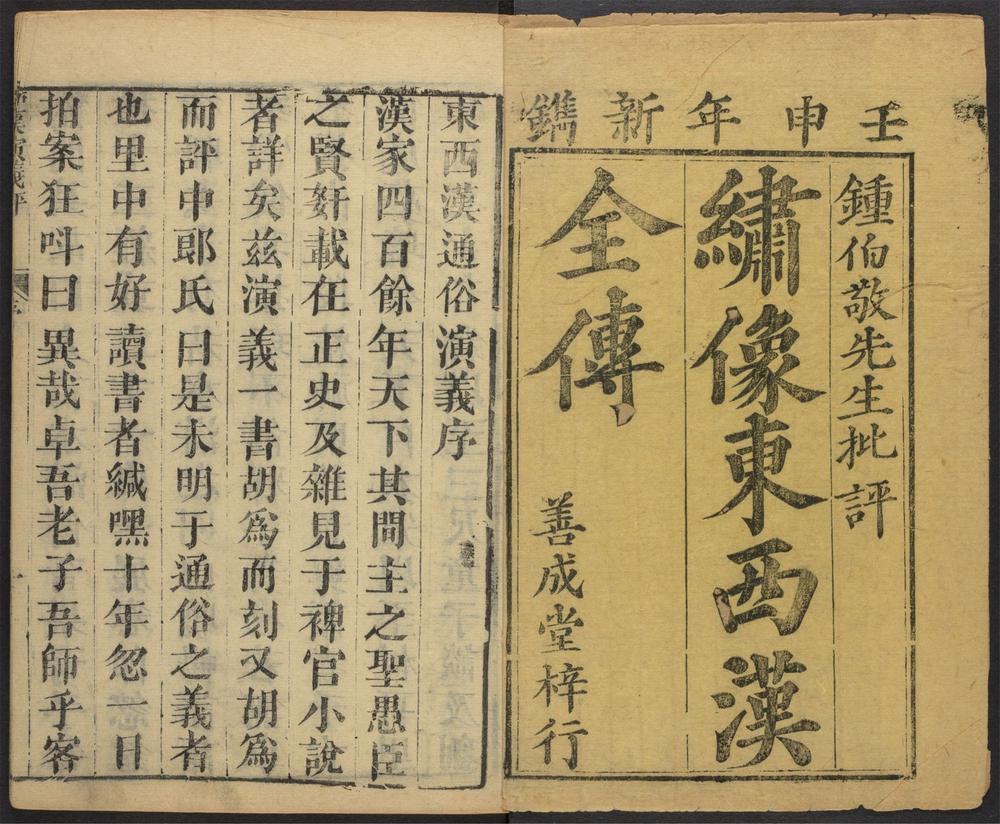 壬申年新鐫
鍾伯敬先生批評
繡像東西漢
全傳
善成堂梓行
東西漢通俗演義序
漢家四百餘年天下其間主之聖愚臣
之賢奸載在正史及雜見于稗官小說
者詳矣茲演義一書胡爲而刻又胡爲
而評中郎氏曰是未明于通俗之義者
也里中有好讀書者緘嘿十年忽一日
拍案狂呌曰異哉卓吾老子吾師乎客